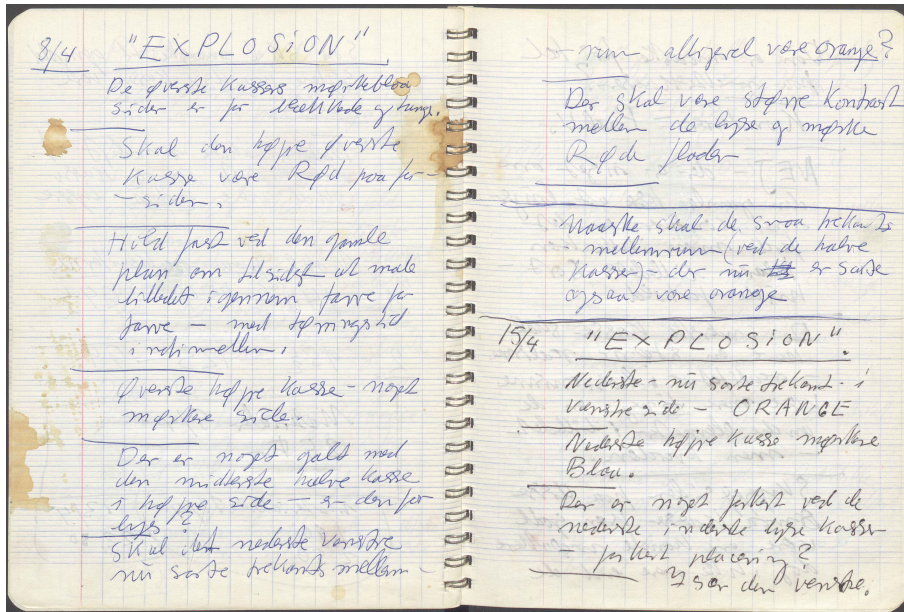 8/4 "EXPLOSION"
De øverste Kassers mørkeblaa
sider er for og tunge.
Skal den højre øverste
Kasse være Rød paa for-
- siden.
Hold fast ved den gamle
plan om tilsidst at male
billedet igennem farve for
farve – med tørringstid
indimellem.
Øverste højre Kasse – noget
mørkere side.
Der er noget galt med
den midterste halve Kasse
i højre side – er den for
lys?
Skal det nederste venstre
nu sorte trekants mellem-
- rum alligevel være orange?
Der skal være større Kontrast
mellem de lyse og mørke
Røde flader
Maaske skal de smaa trekants
mellemrum (ved de halve
Kasser) – der nu er sorte
ogsaa være orange
15/4 "EXPLOSION".
Nederste – nu sorte trekant – i
venstre side – ORANGE
Nederste højre Kasse mørkere
Blaa.
Der er noget forkert ved de
nederste inderste lyse Kasser
– forkert placering?
Især den venstre.